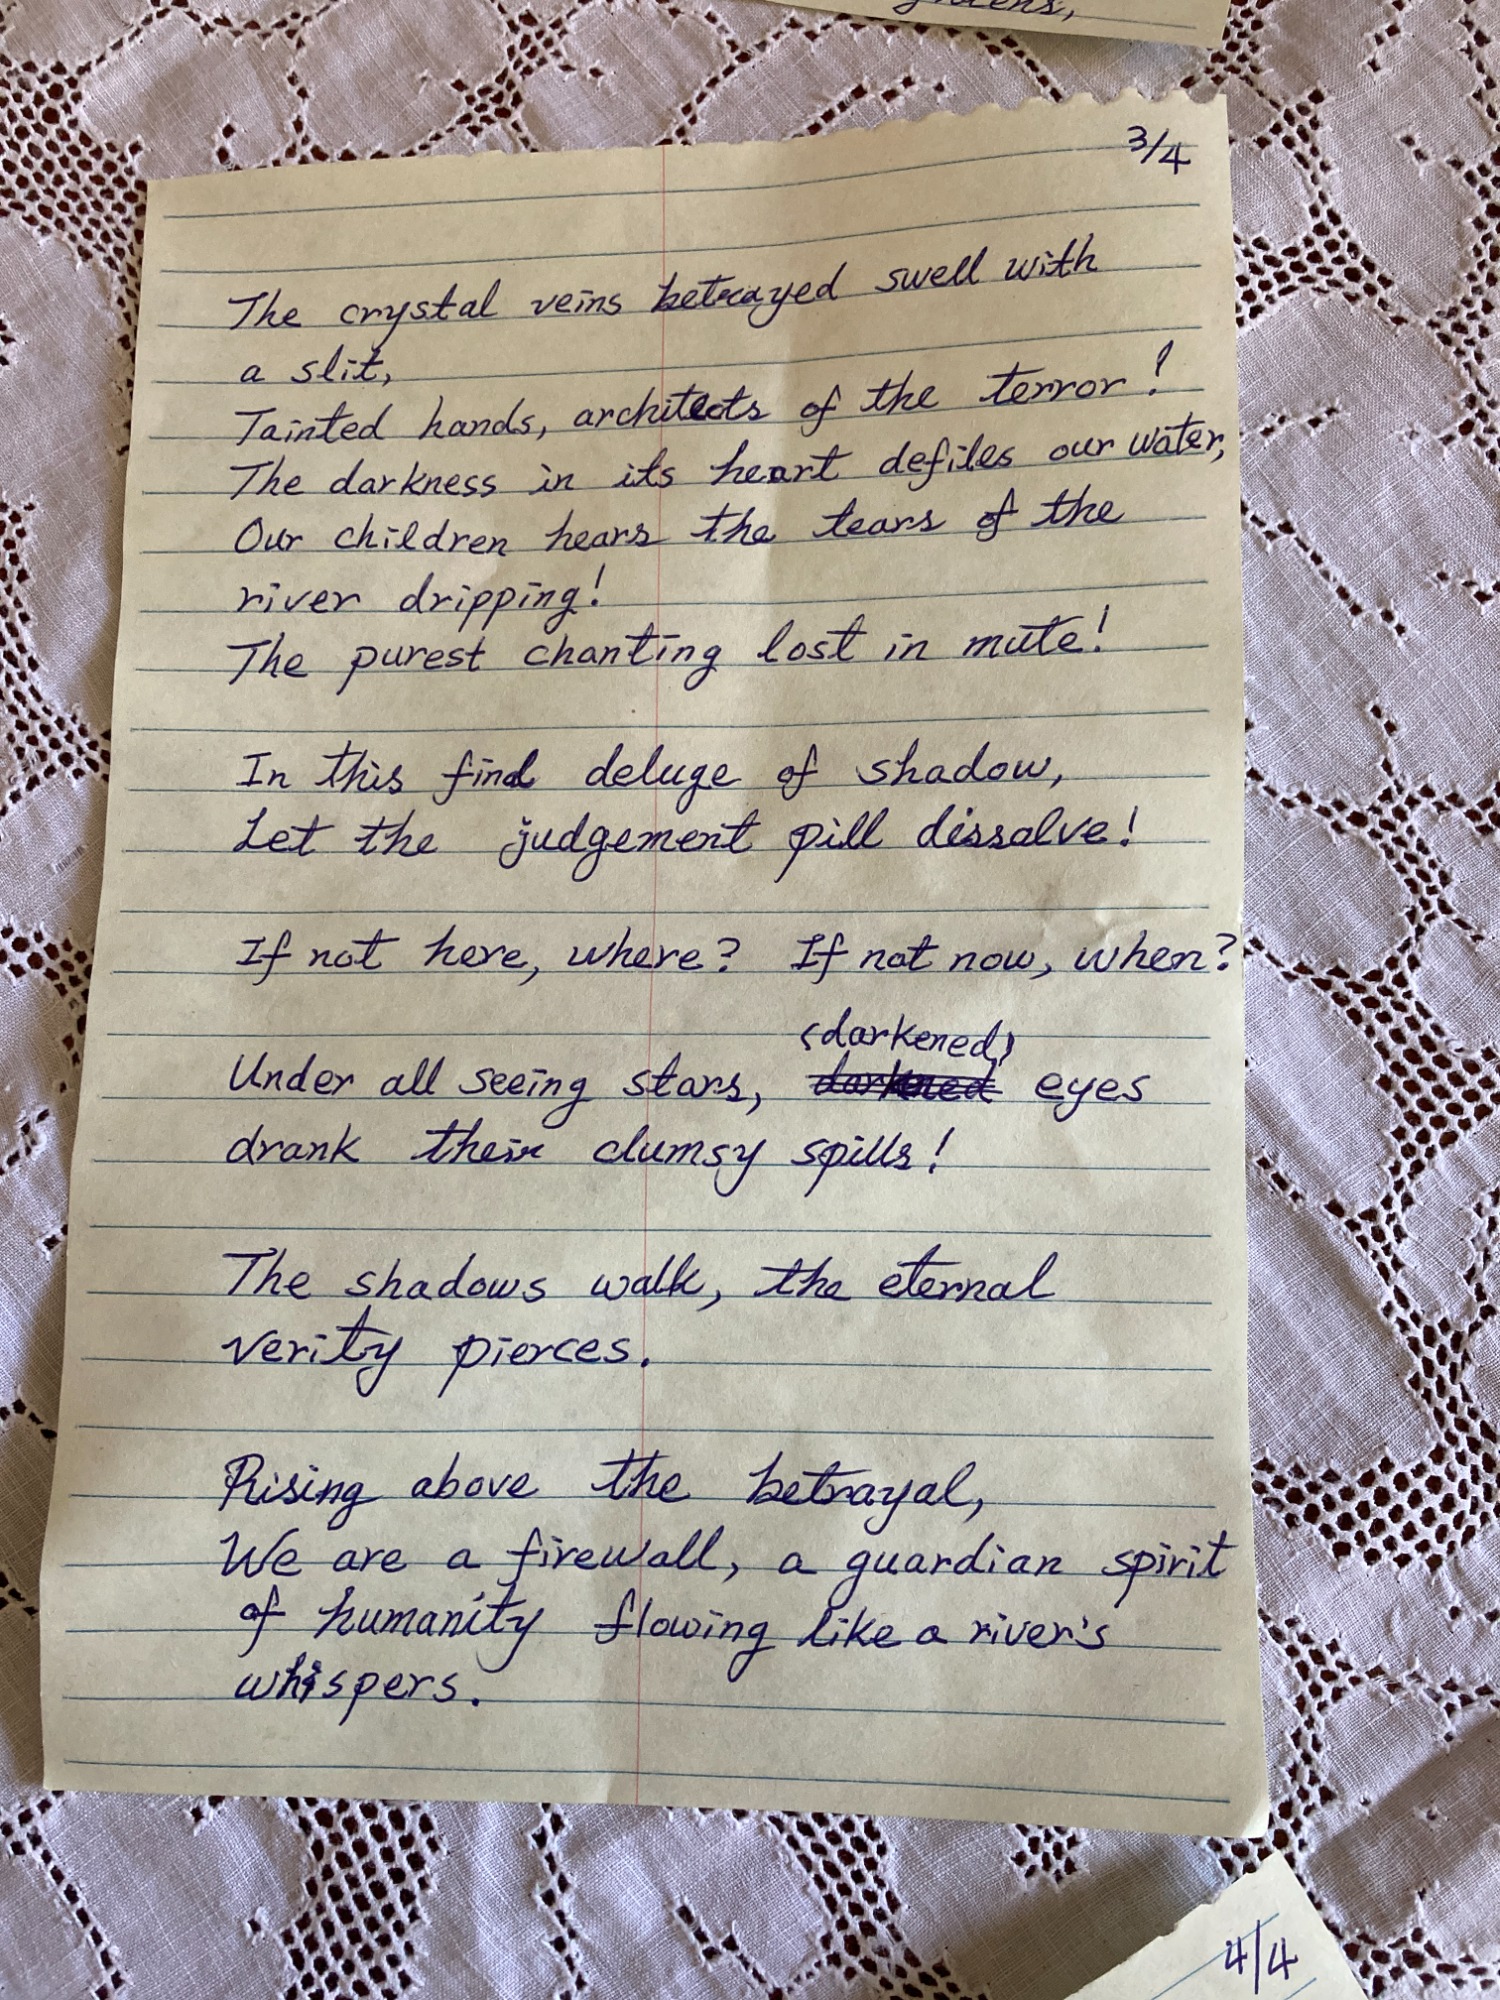 3/4
The crystal veins betrayed swell with
a slit,
Tainted hands, architects of the terror!
The darkness in its heart defiles our water,
Our children hears the tears of the
river dripping!
The purest chanting lost in mute!
In this find deluge of shadow,
Let the judgement pill dissalve!
If not here, where? If not now, when?
(darkened)
Under all seeing stars, darkned eyes
drank their clumsy spills!
The shadows walk, the eternal
verity pierces.
Rising above the betrayal,
We are a firewall, a guardian spirit
of humanity flowing like a river's
whispers.
4/4